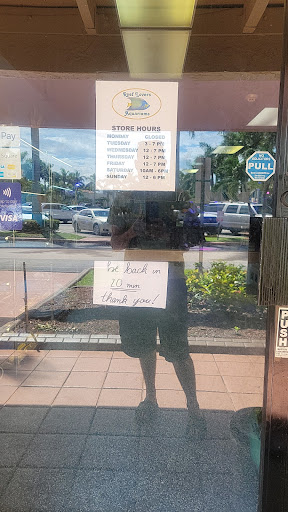 Reef Lovers
Aquariums
STORE HOURS
MONDAY CLOSED
TUESDAY 3 - 7 PM
WEDNESDAY 12 - 7 PM
THURSDAY 12 - 7 PM
FRIDAY 12 - 7 PM
SATURDAY 10AM - 6PM
SUNDAY 12 - 6 PM
Pay
VISA
PULL
be back in
20 min
thank you!
PUSH